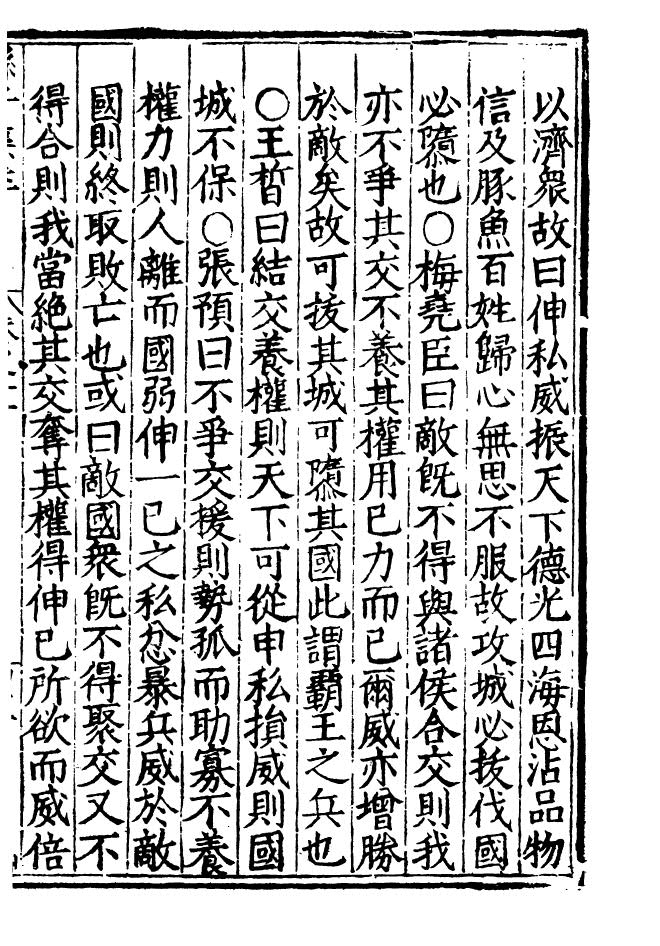 以濟衆故曰伸私威振天下德光四海恩沾品物
信及豚魚百姓歸心無思不服故攻城必拔伐國
必隳也○梅堯臣曰敵旣不得與諸侯合交則我
亦不爭其交不養其權用已力而已爾威亦增勝
於敵矣故可拔其城可隳其國此謂霸王之兵也
○王晳曰結交養權則天下可從申私損威則國
城不保○張預曰不爭交援則勢孤而助寡不養
權力則人離而國弱伸一已之私忿暴兵威於敵
國則終取敗亡也或曰敵國衆旣不得聚交又不
得合則我當絕其交奪其權得伸已所欲而威倍